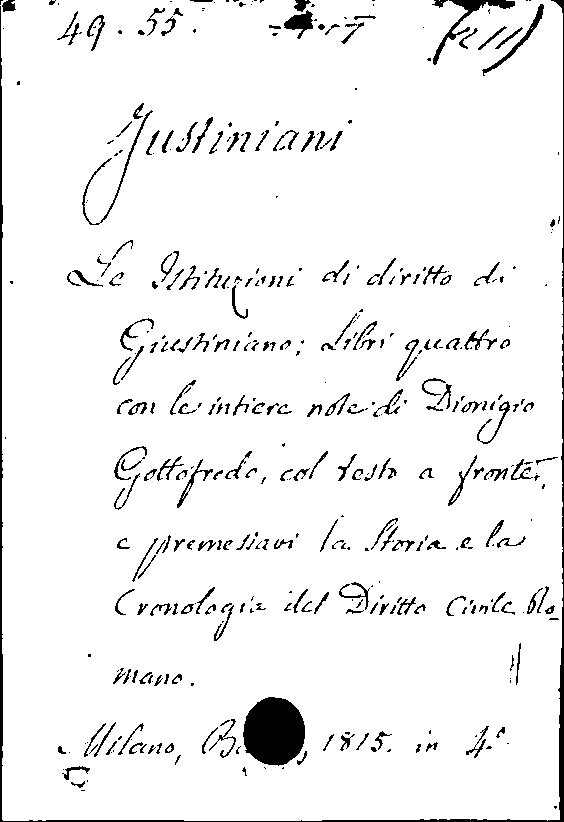 49. 55. (211)
Justiniani
Le Istituzioni di diritto di
Giustiniano; Libri quattro
con le intiere note di Dionigio
Gottofredo, col testo a fronte,
e premessavi la Storia e la
Cronologia del Diritto Civile Ro-
mano.
Milano, 1815. in 4.º